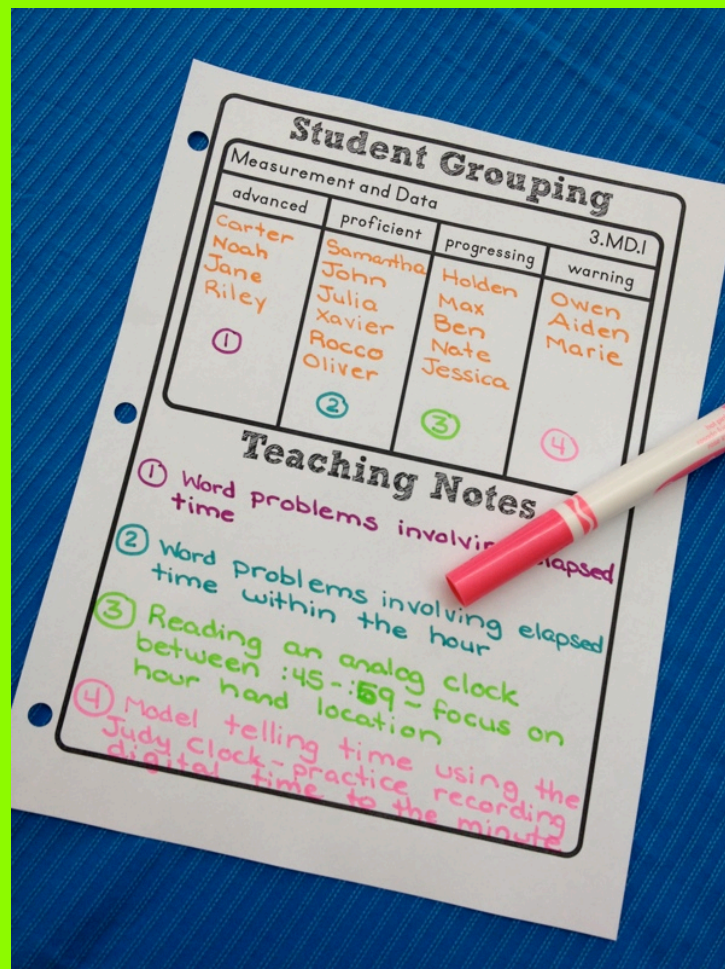 Student Grouping
Measurement and Data
3.MD.1
advanced
Carter
Noah
Jane
Riley
1
proficient
Samantha
John
Julia
Xavier
Rocco
Oliver
2
progressing
Holden
Max
Ben
Nate
Jessica
3
warning
Owen
Aiden
Marie
4
Teaching Notes
1 Word problems involvin elapsed
time
2 Word problems involving elapsed
time within the hour
3 Reading an analog clock
between :45-:59 - focus on
hour hand location
4 Model telling time using the
Judy Clock - practice recording
digital time to the minute